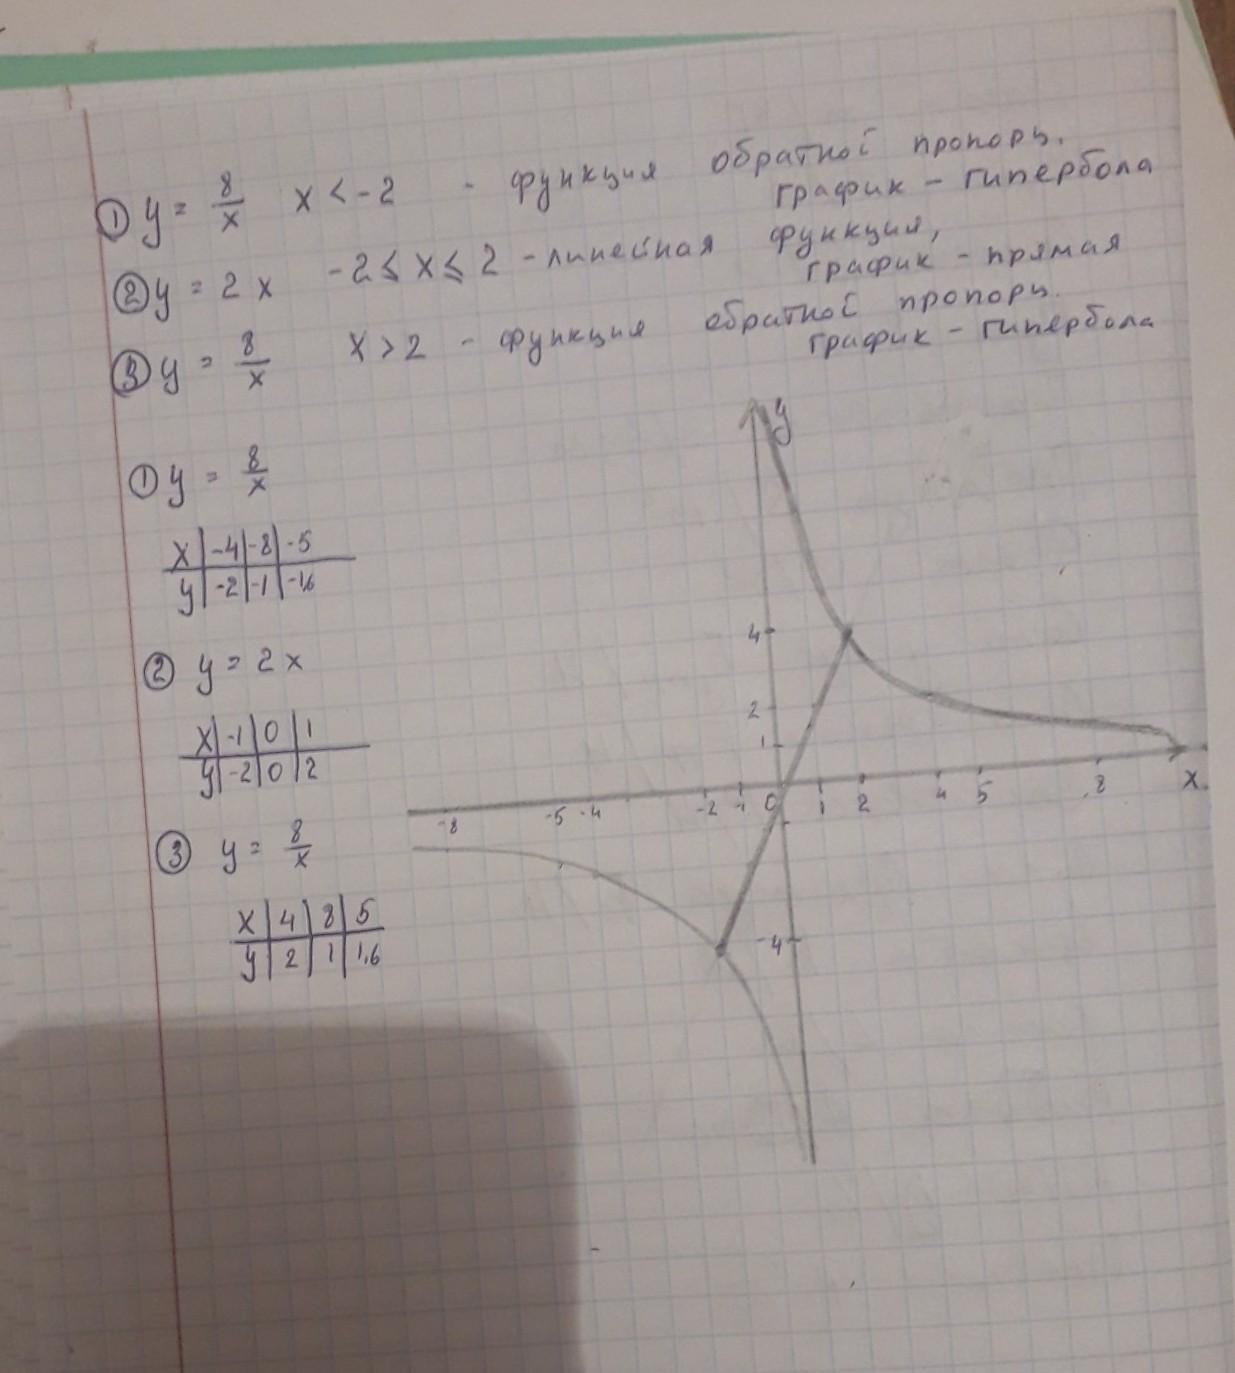 ① y = 8/x x < -2 - функция обратной пропорц.
график - гипербола
② y = 2x -2 ≤ x ≤ 2 - линейная функция,
график - прямая
③ y = 8/x x > 2 - функция обратной пропорц.
график - гипербола
① y = 8/x
x | -4 | -8 | -5
y | -2 | -1 | -1,6
② y = 2x
x | -1 | 0 | 1
y | -2 | 0 | 2
③ y = 8/x
x | 4 | 8 | 5
y | 2 | 1 | 1,6
y
4
2
1
-8 -5 -4 -2 -1 0 1 2 4 5 8 x
-4